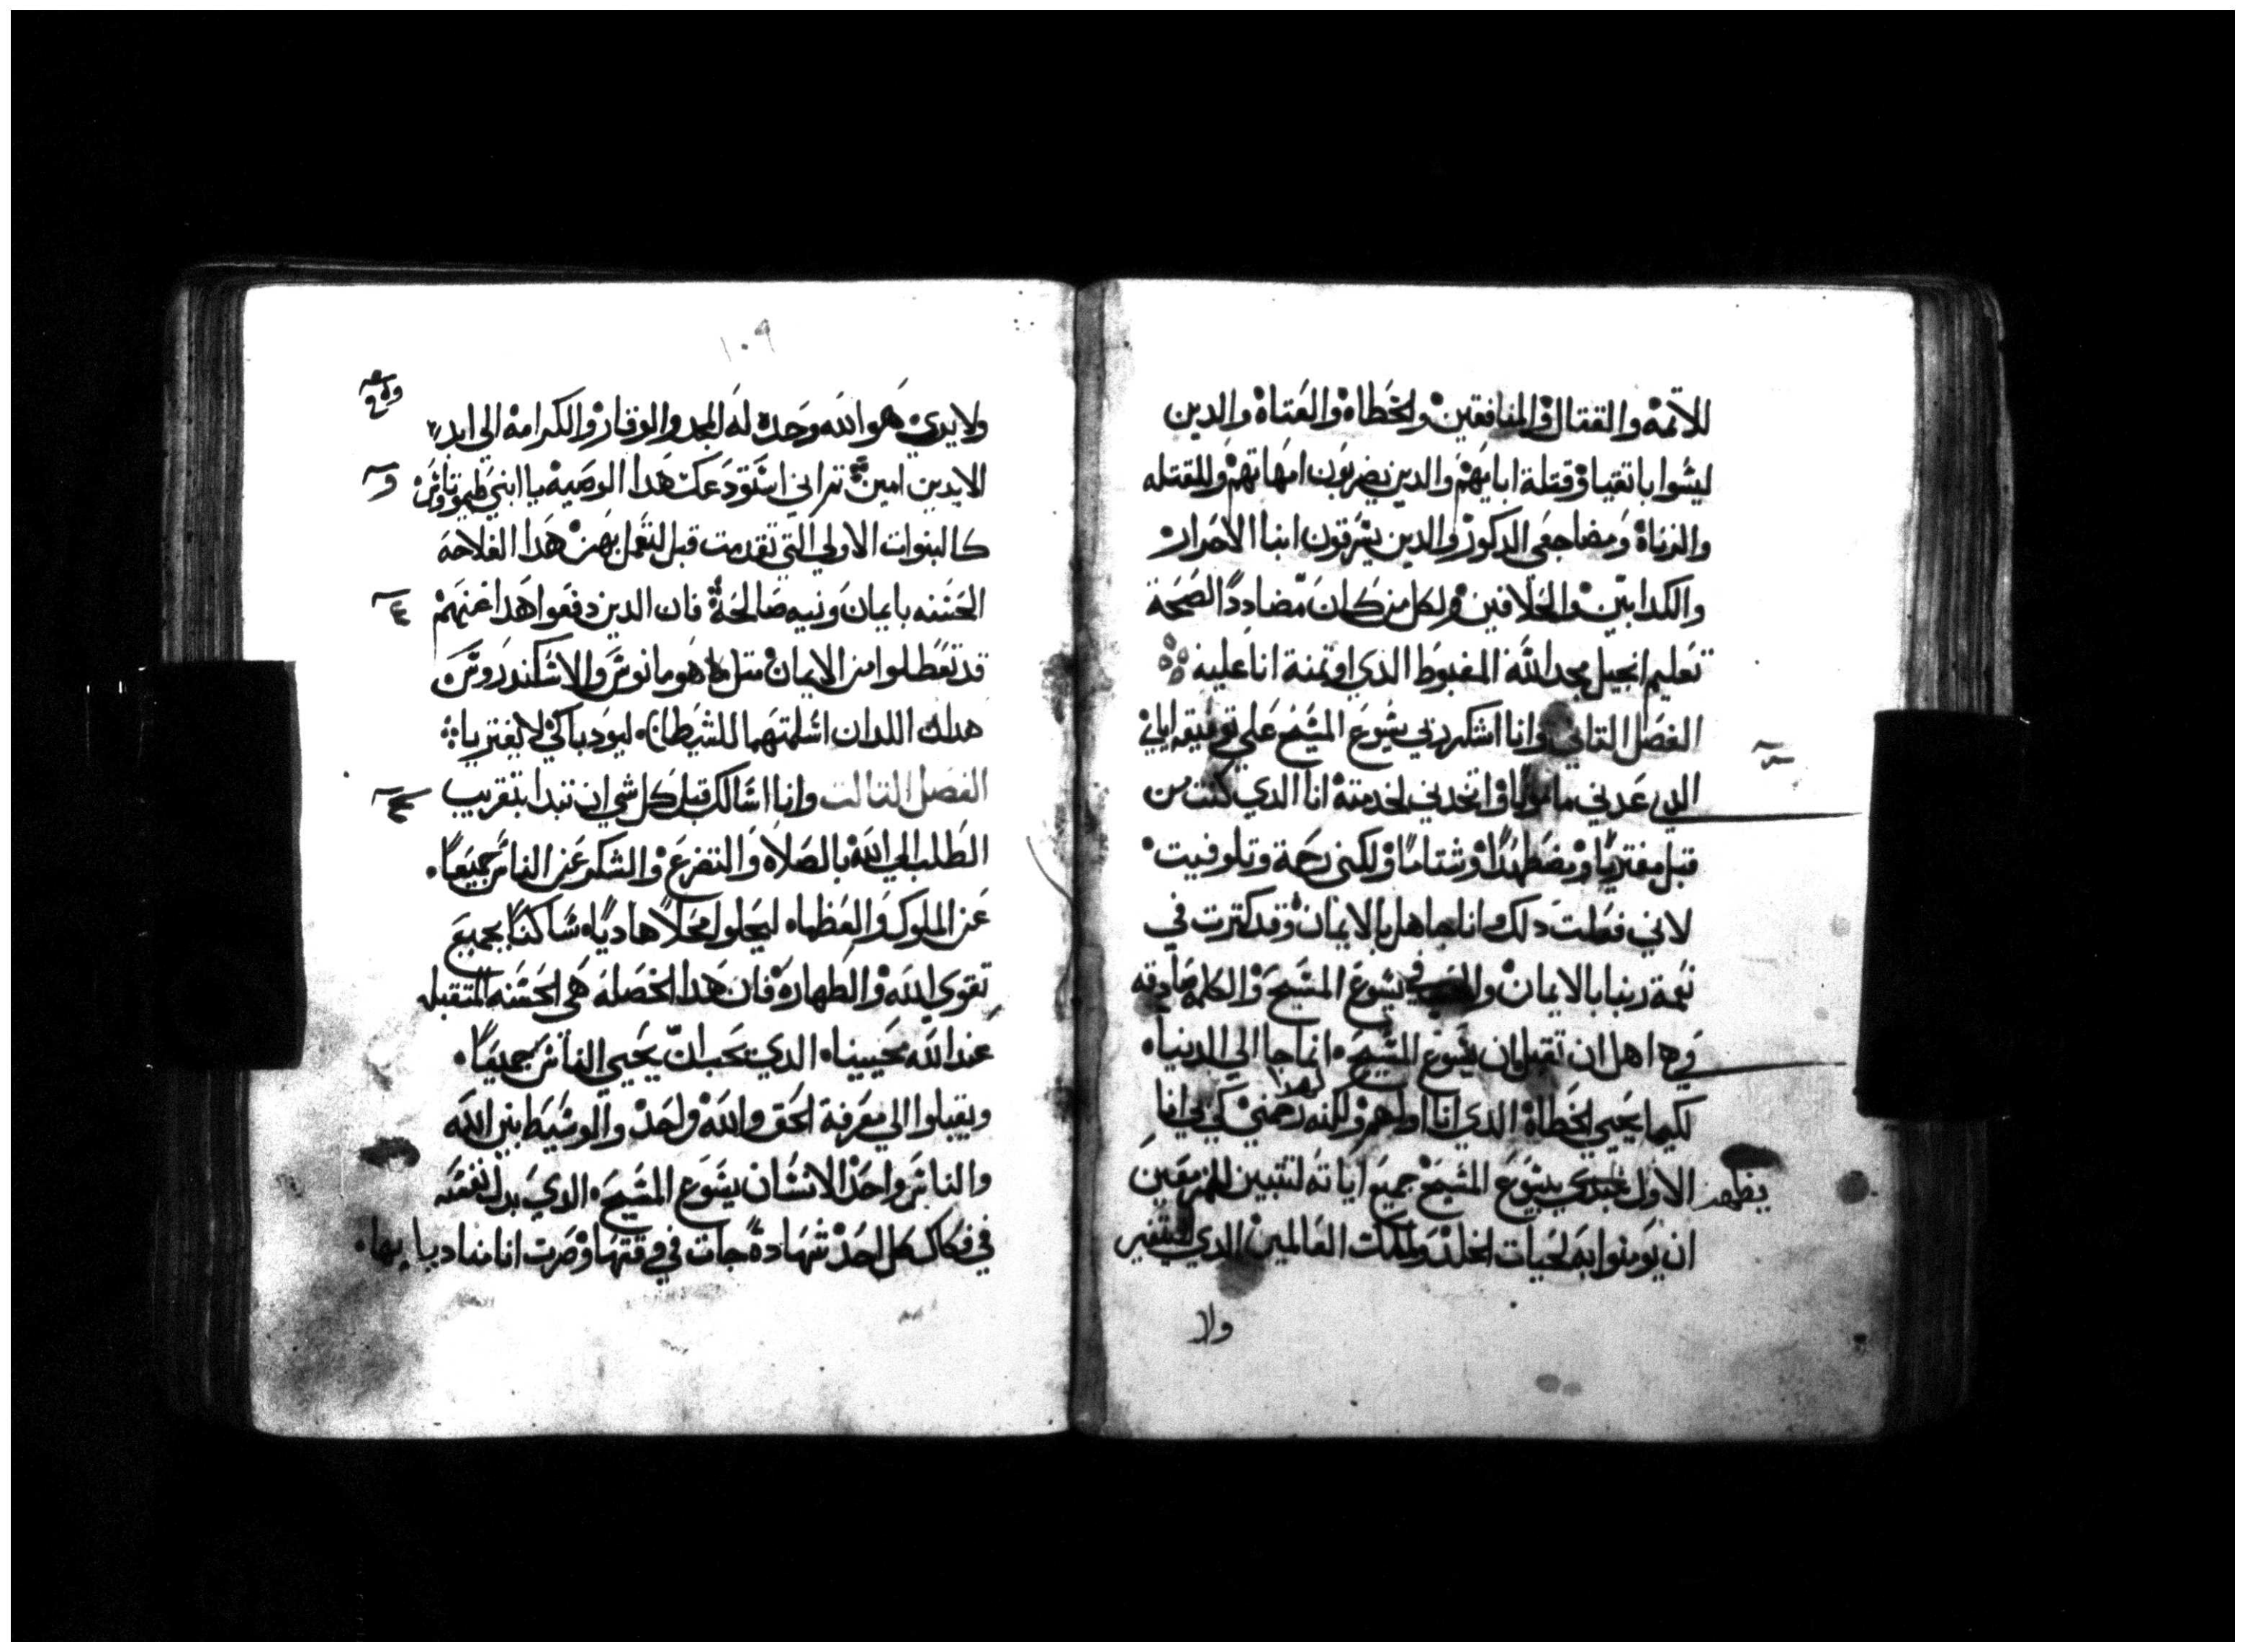 للاتمه والقتال والمنافقين والخطاه والعتاه والدين
ليسوا باتقيا وقتلة ابايهم والدين يضربون امهاتهم وللقتله
والزناة ومضاجعي الدكور والدين يسرقون ابنا الاحرار
والكدابين والحلافين ولكل من كان مضاددًا لصحة
تعليم انجيل مجد الله المغبوط الدي اوتمنة انا عليه
الفصل التاني وانا اشكر ربي يسوع المسيح علي
الدي عدني مامونًا واتخدني لخدمتة انا الدي كنت من
قبل مفتريًا ومضطهدًا وشتامًا ولكني رحمة وتلوفيت
لاني فعلت دلك وانا جاهل بالايمان وقد كترت في
نعمة ربنا بالايمان والحب في يسوع المسيح والكلمه صادقه
وهي اهل ان تقبل ان يسوع المسيح انما جا الي الدنيا
لكيما يحيي الخطاة الدي انا اولهم ولكنه لهدا رحمني كي بي انا
الاول يظهر يسوع المسيح جميع اياته لتتبين للمزمعين
ان يومنوا به لحيات الخلد ولملك العالمين الدي لا يتغير
ولا
١٠٩
ولا يري هو الله وحده له المجد والوقار والكرامه الي ابد
الابدين امين تم اني استودعك هدا الوصيه يا ابني طيموتاوس
كالنبوات الاولي التي تقدمت قبل لتعمل بهن هدا الفلاحه
الحسنه بايمان ونيه صالحة فان الدين دفعوا هدا عنهم
قد تعطلوا من الايمان متل هومانوس والاسكندروس
هداك اللدان اسلمتهما للشيطان ليودبا كي لا يفتريا
الفصل التالت وانا اسالك قبل كل شي ان تبدا بتقريب
الطلب الي الله بالصلاه والتضرع والشكر عن الناس جميعًا
عن الملوك والعظماه ليحلوا محلًا هاديًا ساكنًا بجميع
تقوي الله والطهارة فان هدا الخصلة هي الحسنه المتقبله
عند الله محيينا الدي يحب ان يحيي الناس جميعًا
ويقبلوا الي معرفة الحق والله واحد والوسيط بين الله
والناس واحد الانسان يسوع المسيح الدي بدل نفسه
في فكاك كل احد شهادةً جات في وقتها وصرت انا مناديا بها